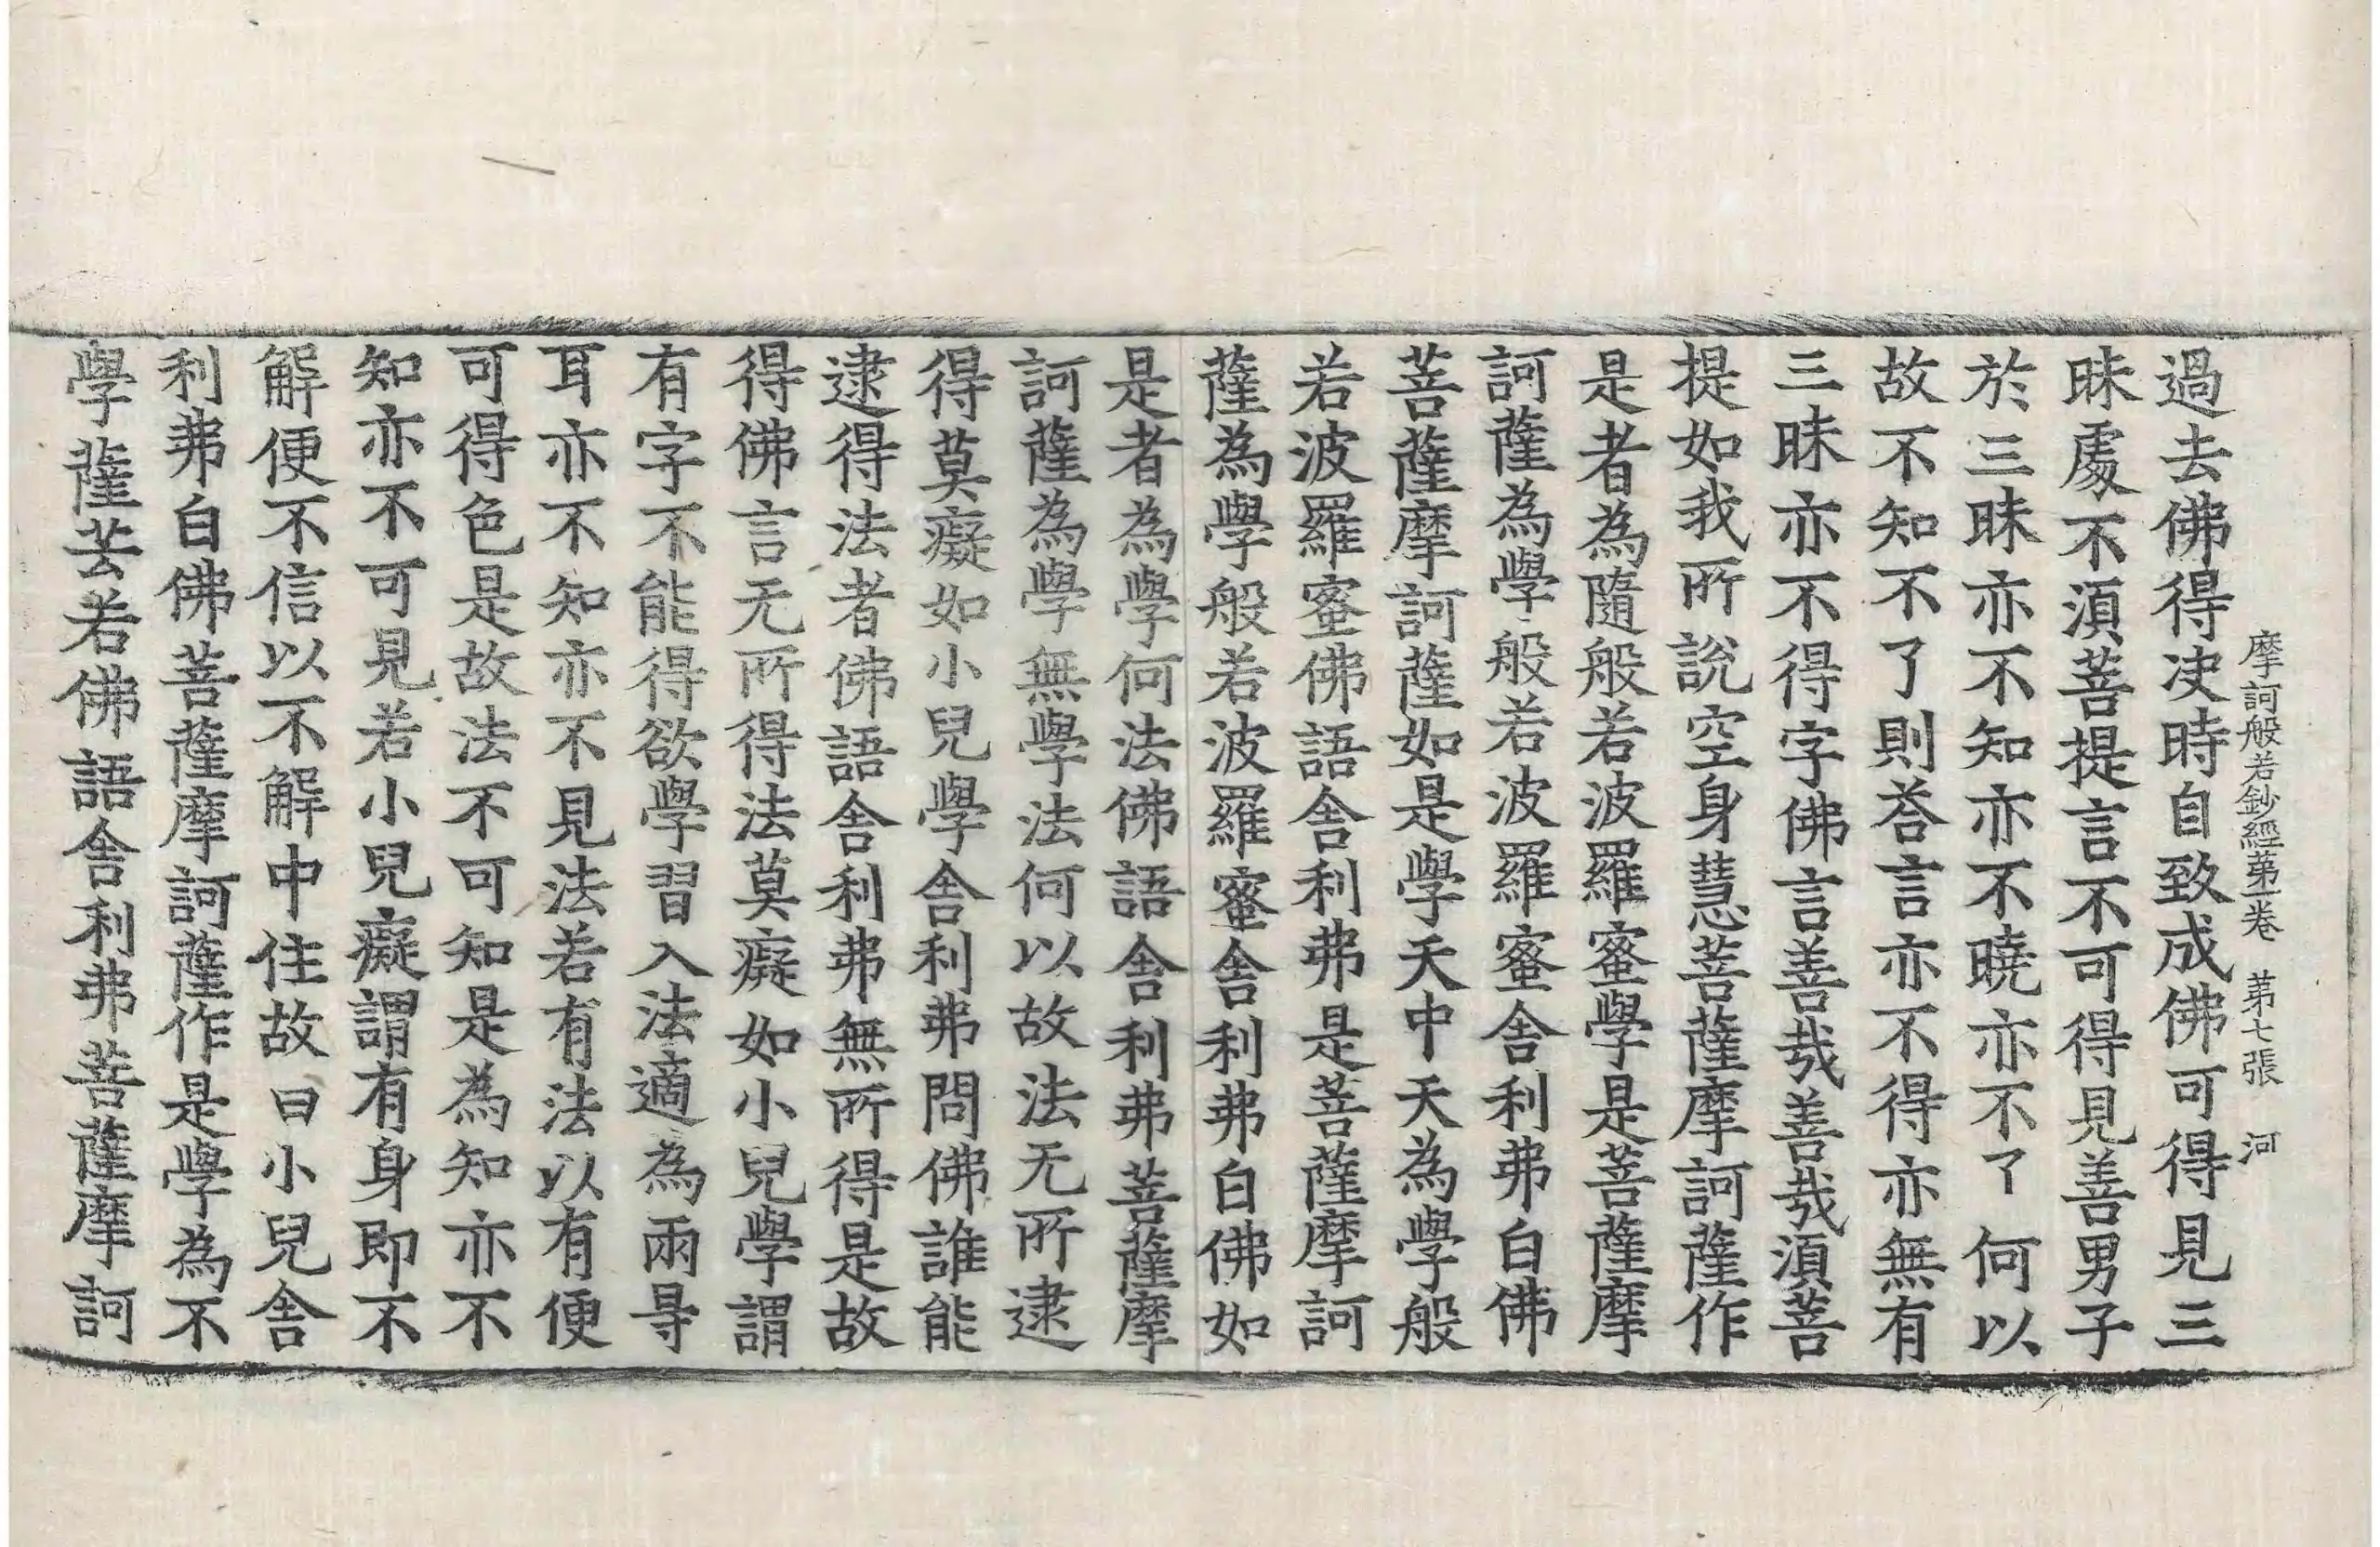 摩訶般若鈔經第一卷 第七張 河
過去佛得决時自致成佛可得見三
昧處不湏菩提言不可得見善男子
於三昧亦不知亦不曉亦不了何以
故不知不了則荅言亦不得亦無有
三昧亦不得字佛言善㢤善㢤湏菩
提如我所說空身慧菩薩摩訶薩作
是者為隨般若波羅蜜學是菩薩摩
訶薩為學般若波羅蜜舍利弗白佛
菩薩摩訶薩如是學天中天為學般
若波羅蜜佛語舍利弗是菩薩摩訶
薩為學般若波羅蜜舍利弗白佛如
是者為學何法佛語舍利弗菩薩摩
訶薩為學無學法何以故法无所逮
得莫癡如小兒學舍利弗問佛誰能
逮得法者佛語舍利弗無所得是故
得佛言无所得法莫癡如小兒學謂
有字不能得欲學習入法適為兩㝵
耳亦不知亦不見法若有法以有便
可得色是故法不可知是為知亦不
知亦不可見若小兒癡謂有身即不
解便不信以不解中住故曰小兒舍
利弗白佛菩薩摩訶薩作是學為不
學薩芸若佛語舍利弗菩薩摩訶